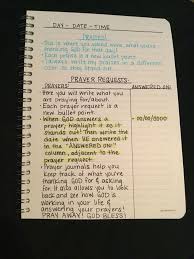 DAY - DATE - TIME
PRAISES!
This is where you would write what you're
thanking God for that day!
Each praise is a new bullet point
color so they stand out!
PRAYER REQUESTS:
PRAYERS: ANSWERED ON:
Here you will write what you 00/00/0000
are praying for/about.
Each prayer request is a
new bullet point.
When GOD answers a
prayer, highlight it so it
stands out! Then write the
date when HE answered it
in the "ANSWERED ON:"
column, adjacent to the
prayer request!
Prayer journals help you
keep track of what you're
thanking GOD for & asking
for. It also allows you to look
back and see how GOD is
working in your life &
answering your prayers!
PRAY AWAY! GOD BLESS!